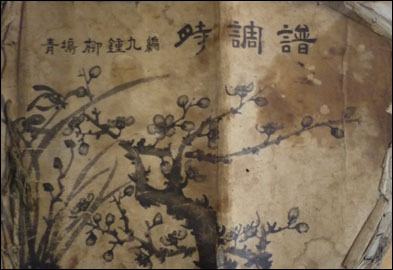 青塢 柳鍾九 編 時調譜